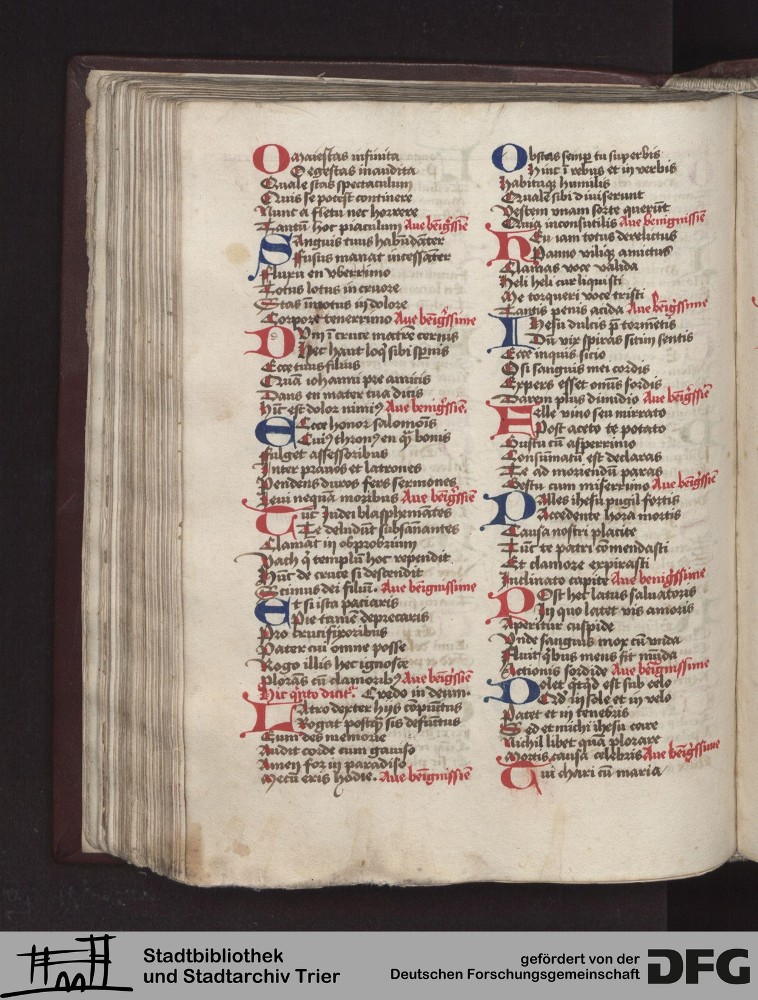 O maiestas infinita
O egestas inaudita
Quale stas spectaculum
Quis se potest continere
Nunc a fletu nec horrere
Tantū hoc piaculum Aue bēigissīe
Sanguis tuus habūdāter
Fusus manat incessāter
Fluxu en vberrimo
Totus lotus in cruore
Stas in dolore
Corpore tenerrimo Aue bēigissime
Dum ī cruce matrē cernis
Hec haut loqͥ sibi spernis
Ecce tuus filius
Quā iohanni pre amicis
Dans en mater tua dicis
Hīc est dolor nimiꝰ Aue benigissīe.
Ecce honor salomois
Cuiꝰ thronꝰ en bonis
Fulget assessoribus
Inter prauos et latrones
Pendens duros fers sermones
Leui nequā moribus Aue bēigissīe
Tūc Iudei blasphemātes
Te deludūt subsānantes
Clamāt in obprobrium
Vach qͥ templū hoc rependit
Hūc de cruce si descendit
Scimus dei filiū. Aue beignissime
Et si ista paciaris
Pie tamē deprecaris
Pro crucifixoribus
Pater cui omne posse
Rogo illis hec ignosce
Ploras cū clamoribꝰ Aue bēigissīe
Hic qͥnto dicitᷣ. Credo in deum.
Latro dexter hijs cōpūctus
Rogat postqͣ sis defūctus
Eum des memorie
Audit corde cum gauiso
Amen for in paradiso
Mecū eris hodie. Aue bēignissīe
Obstas semp tu superbis
Hinc ī rebus et in verbis
Habituqꝫ humilis
Quale sibi diuiserunt
Vestem vnam sorte querūt
Quia inconsutilis Aue benignissīe
Heu iam totus derelictus
Panno viliqꝫ amictus
Clamas voce valida
Heli heli cur liquisti
Me torqueri voce tristi
Tangis penis acida Aue bēigissime
Ihesu dulcis p̄ tormētis
Dū vix spiras sitim sentis
Ecce inquis sicio
O si sanguis mei cordis
Expers esset omīs sordis
Darem plus dimidio Aue bēigissīe
Felle vino seu mirrato
Post aceto te potato
Gustu cū asperrimo
Consūmatū est declaras
Te ad moriendū paras
Gestu cum miserrimo Aue bēigissīe
Palles ihesu pugil fortis
Accedente hora mortis
Causa nostri placite
Tūc te patri cōmendasti
Et clamore expirasti
Inclinato capite Aue benigissime
Post hec latus saluatoris
In quo latet vis amoris
Aperitur cuspide
Vnde sanguis mox cū vnda
Fluit qͥbus mens fit mūda
Actionis sordide Aue beignissime
Dolet qͥcqͥd est sub celo
in sole et in velo
Patet et in tenebris
Sed et michi ihesu care
Nichil libet quā plorare
Mortis causa celebris Aue bēigissime
Qui chari cū maria
Stadtbibliothek
und Stadtarchiv Trier
gefördert von der
Deutschen Forschungsgemeinschaft
DFG